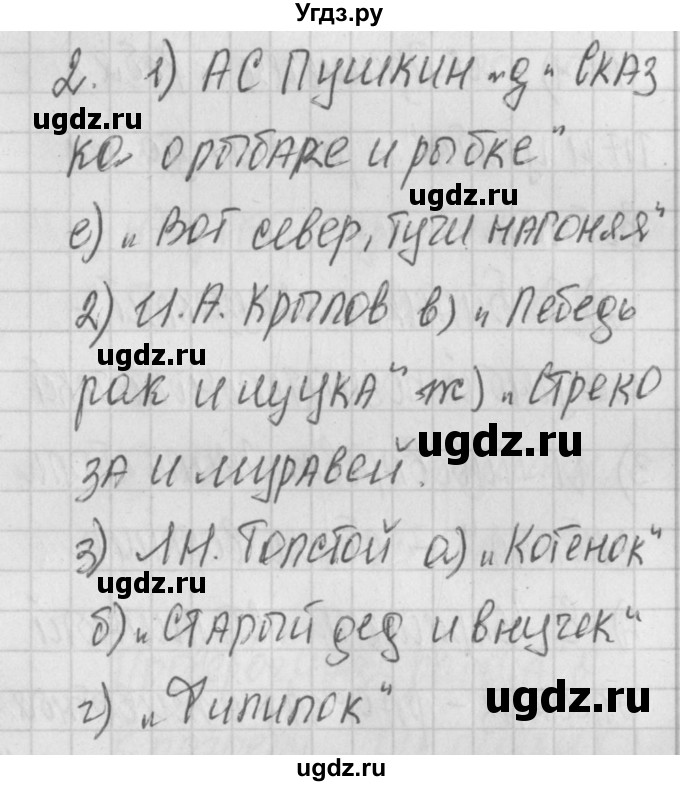 Угдз.ру
2. 1) АС Пушкин "д" Сказ
ugdz.ru
ка о рыбаке и рыбке"
ugdz.ru
е) "Вот север, тучи нагоняя"
2) И.А. Крылов в) "Лебедь
ugdz.ru
рак и щука" ж) "Стреко
ugdz.ru
за и муравей.
3) Л.Н. Толстой а) "Котенок"
ugdz.ru
б) "Старый дед и внучек"
ugdz.ru
г) "Филипок"
ugdz.ru